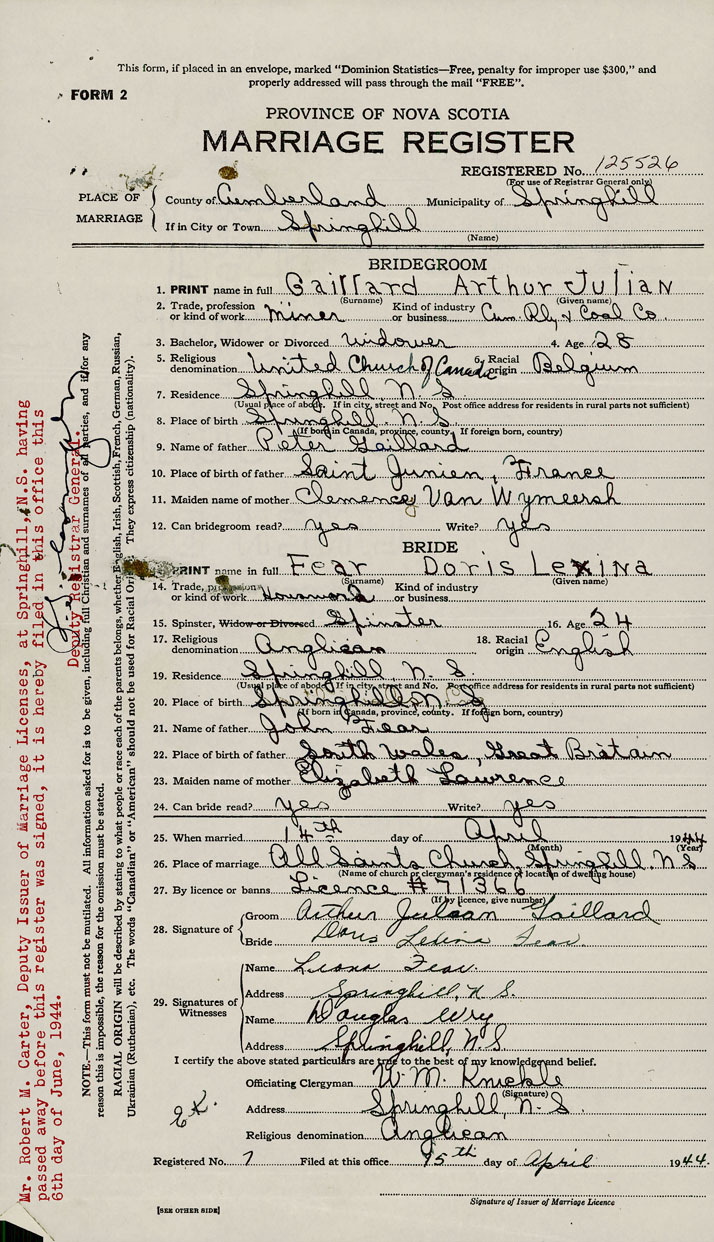 This form, if placed in an envelope, marked “Dominion Statistics—Free, penalty for improper use $300,” and
properly addressed will pass through the mail “FREE”.
FORM 2
PROVINCE OF NOVA SCOTIA
MARRIAGE REGISTER
REGISTERED No. 125526
(For use of Registrar General only)
PLACE OF MARRIAGE
County of Cumberland Municipality of Springhill
If in City or Town Springhill
(Name)
BRIDEGROOM
1. PRINT name in full Gaillard Arthur Julian
(Surname) (Given name)
2. Trade, profession or kind of work Miner Kind of industry or business Cum. Rly & Coal Co.
3. Bachelor, Widower or Divorced Widower 4. Age 28
5. Religious denomination United Church of Canada 6. Racial origin Belgium
7. Residence Springhill, N.S.
(Usual place of abode. If in city, street and No. Post office address for residents in rural parts not sufficient)
8. Place of birth Springhill, N.S.
(If born in Canada, province, county. If foreign born, country)
9. Name of father Peter Gaillard
10. Place of birth of father Saint Junien, France
11. Maiden name of mother Clemency Van Wymeersh
12. Can bridegroom read? yes Write? yes
BRIDE
PRINT name in full Fear Doris Lexina
(Surname) (Given name)
14. Trade, profession or kind of work Kind of industry or business
15. Spinster, Widow or Divorced Spinster 16. Age 24
17. Religious denomination Anglican 18. Racial origin English
19. Residence Springhill, N.S
(Usual place of abode. If in city, street and No. Post office address for residents in rural parts not sufficient)
20. Place of birth Springhill N.S
(If born in Canada, province, county. If foreign born, country)
21. Name of father John Fear
22. Place of birth of father South Wales, Great Britain
23. Maiden name of mother Elizabeth Lawrence
24. Can bride read? yes Write? yes
25. When married 14th day of April 1944
(Month) (Year)
26. Place of marriage All Saints Church, Springhill, N S
(Name of church or clergyman's residence or location of dwelling house)
27. By licence or banns Licence # 71366
(If by licence, give number)
28. Signature of
Groom Arthur Julian Gaillard
Bride Doris Lexina Fear.
29. Signatures of Witnesses
Name Leona Fear.
Address Springhill, N S.
Name Douglas Wry
Address Springhill, N.S.
I certify the above stated particulars are true to the best of my knowledge and belief.
Officiating Clergyman W. M. Knickle
(Signature)
Address Springhill, N-S.
Religious denomination Anglican
Registered No. 7 Filed at this office 15th day of April 1944.
Signature of Issuer of Marriage Licence
[SEE OTHER SIDE]
Mr. Robert M. Carter, Deputy Issuer of Marriage Licenses, at Springhill, N.S. having
passed away before this register was signed, it is hereby filed in this office this
6th day of June, 1944.
Deputy Registrar General.
NOTE.—This form must not be mutilated. All information asked for is to be given, including full Christian and surnames of all parties, and if for any
reason this is impossible, the reason for the omission must be stated.
RACIAL ORIGIN will be described by stating to what people or race each of the parents belongs, whether English, Irish, Scottish, French, German, Russian,
Ukrainian (Ruthenian), etc. The words “Canadian” or “American” should not be used for Racial Origin. They express citizenship (nationality).